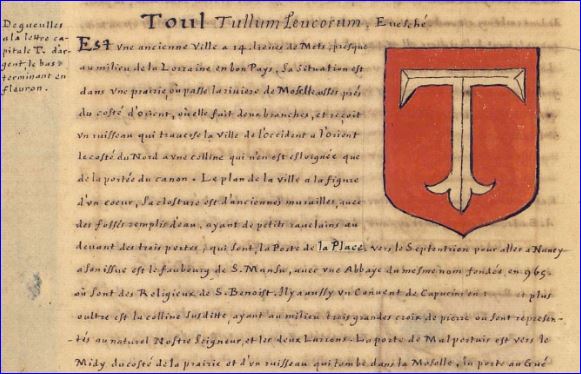 Toul Tullum Leucorum, Euesché.
De gueulles
a la lettre ca-
pitale T. d'ar-
gent, le bas
terminant en
fleuron.
Est vne ancienne Ville a 14. lieues de Mets, presque
au milieu de la Lorraine en bon Pays, Sa Situation est
dans vne prairie, ou passe la riuiere de Moselle asses prés
du costé d'orient, ou elle fait deux branches, et reçoit
vn ruisseau qui trauerse la ville de l'occident a l'orient
le costé du Nord a vne colline qui n'en est eslognée que
de la portée du canon. Le plan de la ville a la figure
d'vn coeur, Sa closture est d'anciennes murailles, auec
des fossés remplis d'eau, ayant de petits rauelains au
deuant des trois portes, qui sont, la Porte de la Place, vers le Septentrion pour aller a Nancy
a son issue est le faubourg de S. Mansu, auec vne Abbaye du mesme nom fondée en 965.
où sont des Religieux de S. Benoist. Il y a ussy vn Conuent de Capucins en et plus
oultre est la colline susditte, ayant au milieu trois grandes croix de pierre ou sont represen-
tés au naturel Nostre Seigneur, et les deux Larrons. La porte de Malpertuis est vers le
Midy du costé de la prairie et d'vn ruisseau qui tombe dans la Moselle, la porte au Gué
T